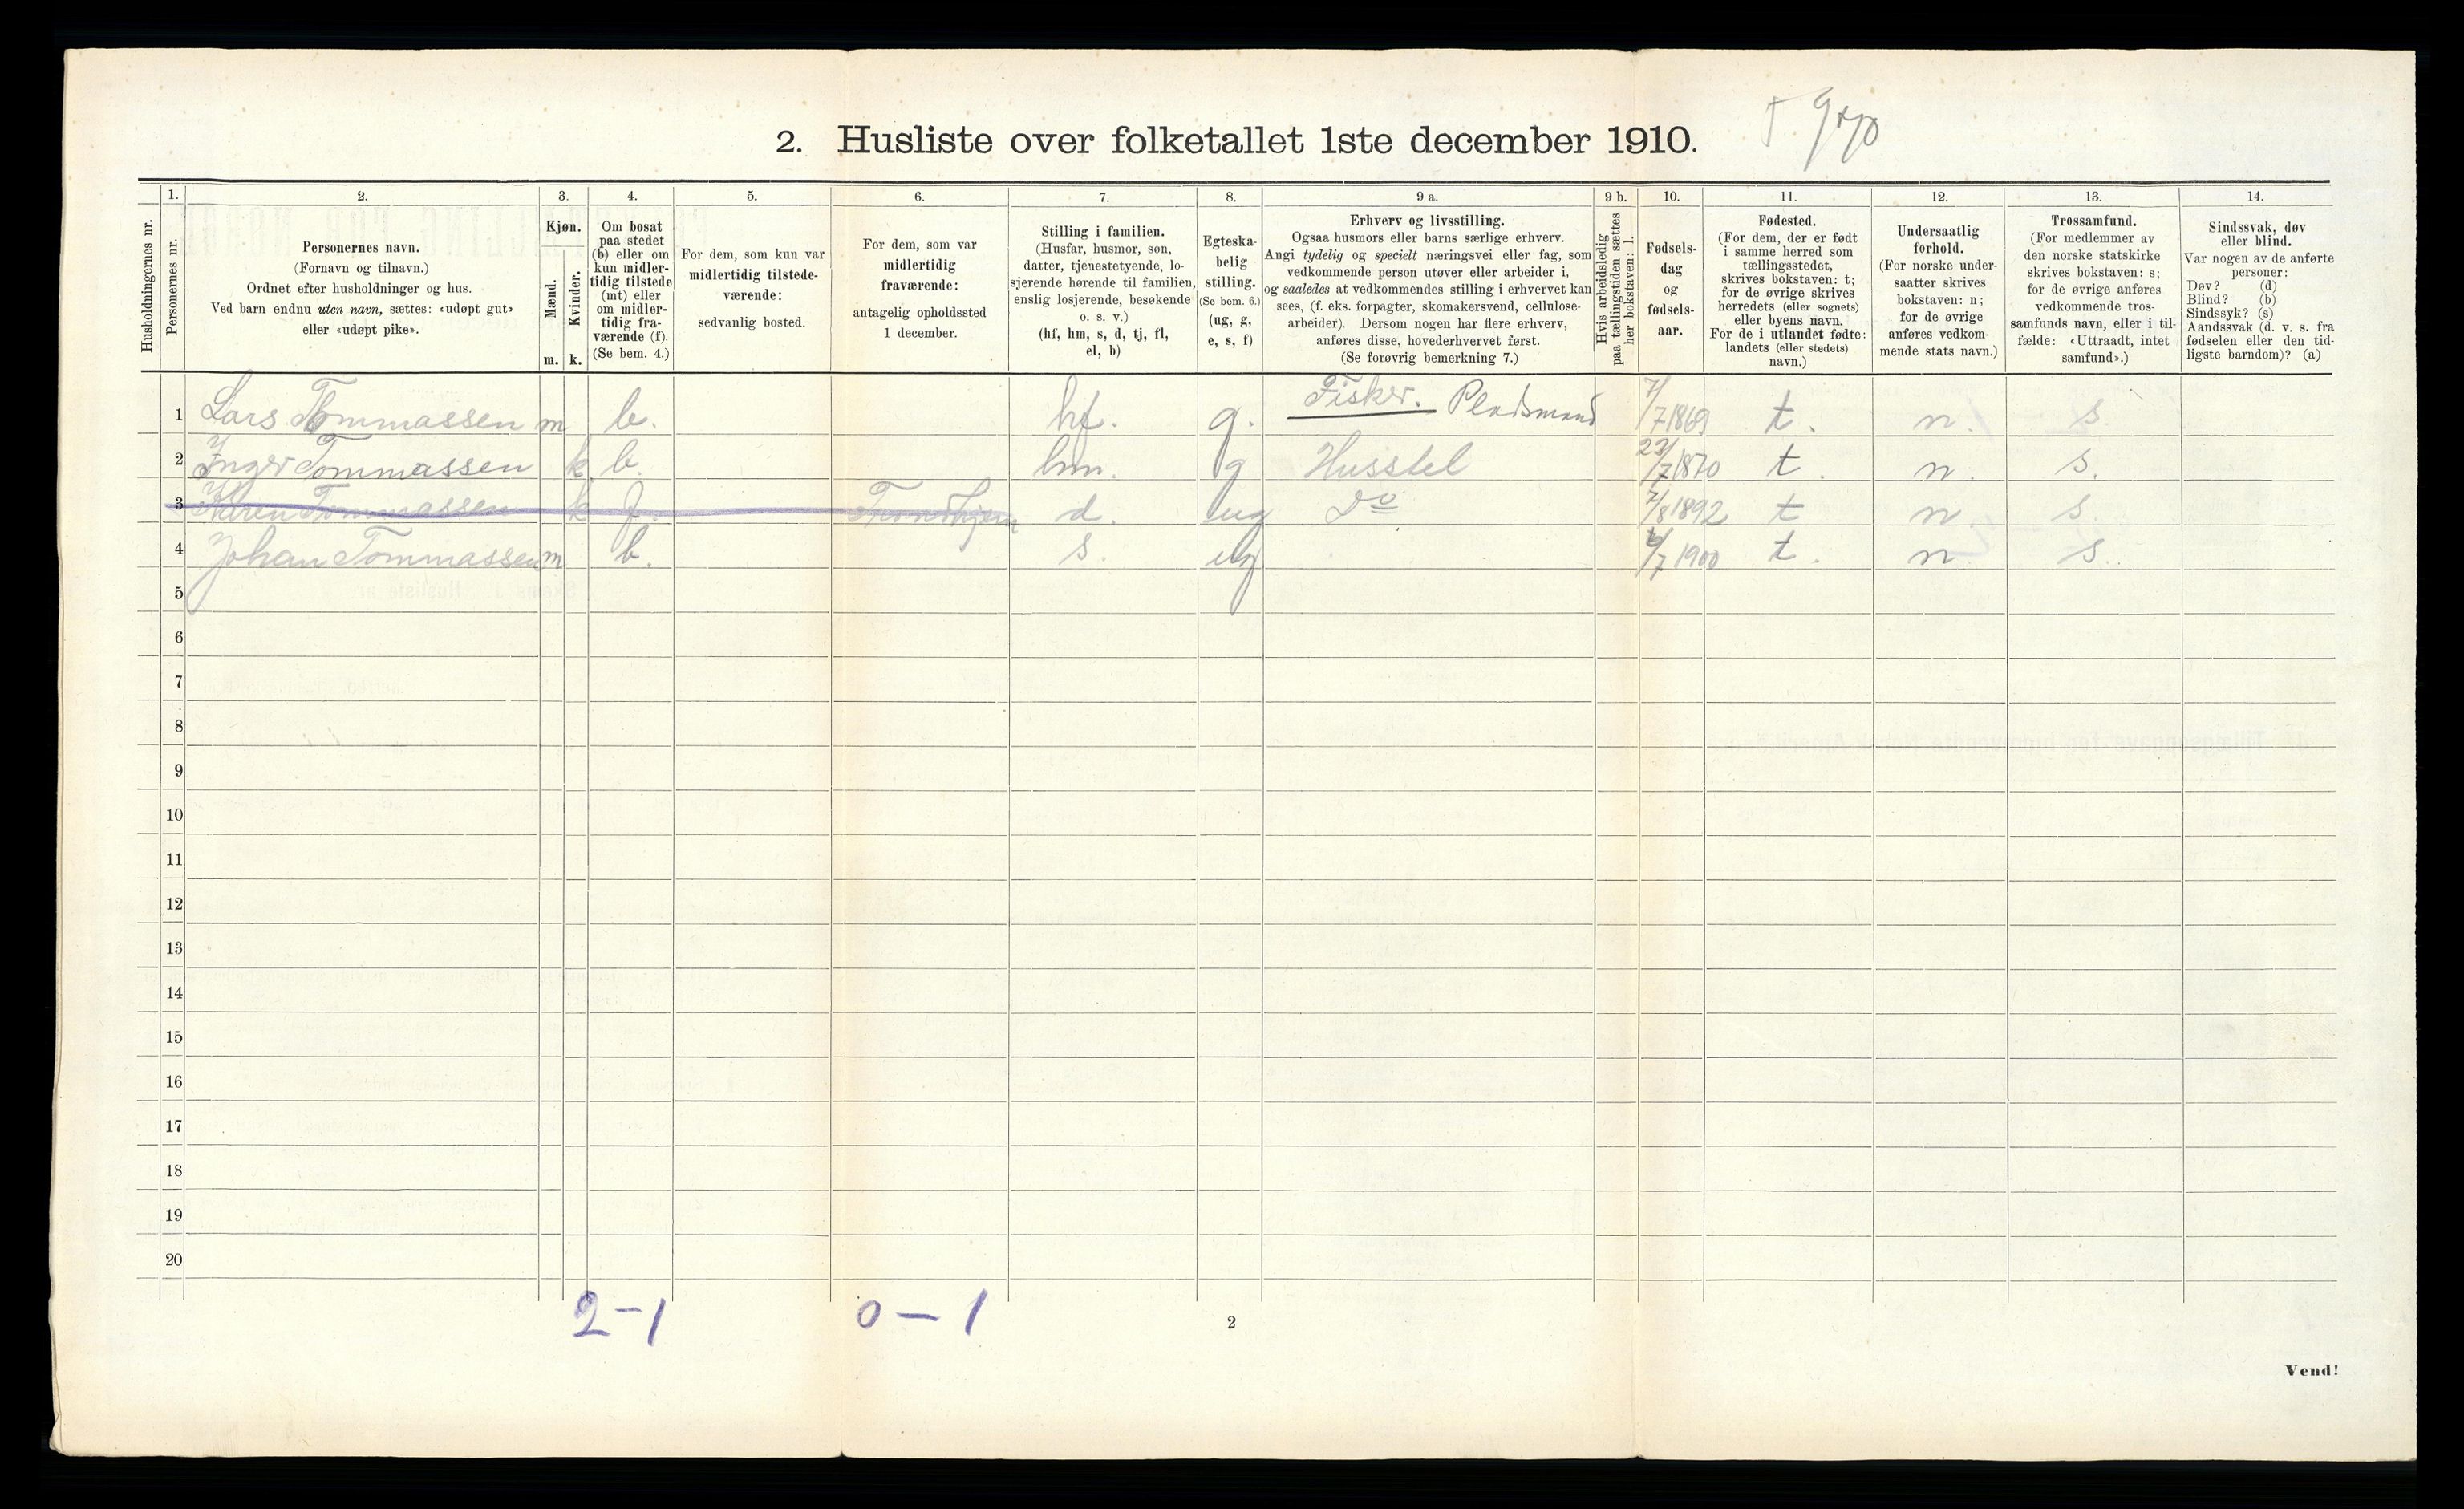 2. Husliste over folketallet 1ste december 1910.
1. 2. 3. 4. 5. 6. 7. 8. 9 a. 9 b. 10. 11. 12. 13. 14.
Husholdningernes nr.
Personernes nr.
Personernes navn.
(Fornavn og tilnavn.)
Ordnet efter husholdninger og hus.
Ved barn endnu uten navn, sættes: «udøpt gut»
eller «udøpt pike».
Kjøn.
Mænd.
m.
Kvinder.
k.
Om bosat
paa stedet
(b) eller om
kun midler-
tidig tilstede
(mt) eller
om midler-
tidig fra-
værende (f).
(Se bem. 4.)
For dem, som kun var
midlertidig tilstede-
værende:
sedvanlig bosted.
For dem, som var
midlertidig
fraværende:
antagelig opholdssted
1 december.
Stilling i familien.
(Husfar, husmor, søn,
datter, tjenestetyende, lo-
sjerende hørende til familien,
enslig losjerende, besøkende
o. s. v.)
(hf, hm, s, d, tj, fl,
el, b)
Egteska-
belig
stilling.
(Se bem. 6.)
(ug, g,
e, s, f)
Erhverv og livsstilling.
Ogsaa husmors eller barns særlige erhverv.
Angi tydelig og specielt næringsvei eller fag, som
vedkommende person utøver eller arbeider i,
og saaledes at vedkommendes stilling i erhvervet kan
sees, (f. eks. forpagter, skomakersvend, cellulose-
arbeider). Dersom nogen har flere erhverv,
anføres disse, hovederhvervet først.
(Se forøvrig bemerkning 7.)
Hvis arbeidsledig
paa tællingstiden sættes
her bokstaven: l.
Fødsels-
dag
og
fødsels-
aar.
Fødested.
(For dem, der er født
i samme herred som
tællingsstedet,
skrives bokstaven: t;
for de øvrige skrives
herredets (eller sognets)
eller byens navn.
For de i utlandet fødte:
landets (eller stedets)
navn.)
Undersaatlig
forhold.
(For norske under-
saatter skrives
bokstaven: n;
for de øvrige
anføres vedkom-
mende stats navn.)
Trossamfund.
(For medlemmer av
den norske statskirke
skrives bokstaven: s;
for de øvrige anføres
vedkommende tros-
samfunds navn, eller i til-
fælde: «Uttraadt, intet
samfund».)
Sindssvak, døv
eller blind.
Var nogen av de anførte
personer:
Døv? (d)
Blind? (b)
Sindssyk? (s)
Aandssvak (d. v. s. fra
fødselen eller den tid-
ligste barndom)? (a)
1 Lars Tommassen m b. hf. g. Fisker. Pladsmand 7/7 1869 t. n. s.
2 Inger Tommassen k b. hm. g Husstel 23/7 1870 t. n. s.
3 Karen Tommassen k f. Trondhjem d. ug Do 7/8 1892 t n s.
4 Johan Tommassen m b. s. ug 6/7 1900 t. n s.
5
6
7
8
9
10
11
12
13
14
15
16
17
18
19
20
2-1 0-1
2
Vend!